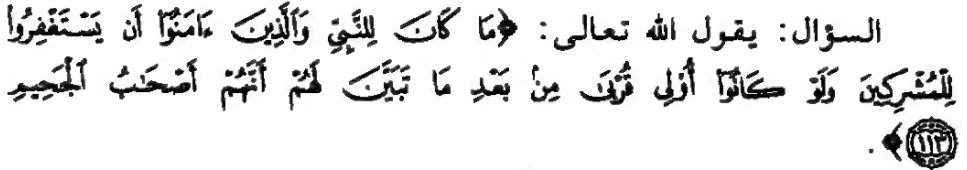 السؤال: يقول الله تعالى: ﴿مَا كَانَ لِلنَّبِيِّ وَٱلَّذِينَ ءَامَنُوٓا۟ أَن يَسْتَغْفِرُوا۟
لِلْمُشْرِكِينَ وَلَوْ كَانُوٓا۟ أُو۟لِى قُرْبَىٰ مِنۢ بَعْدِ مَا تَبَيَّنَ لَهُمْ أَنَّهُمْ أَصْحَٰبُ ٱلْجَحِيمِ
١١٣﴾.